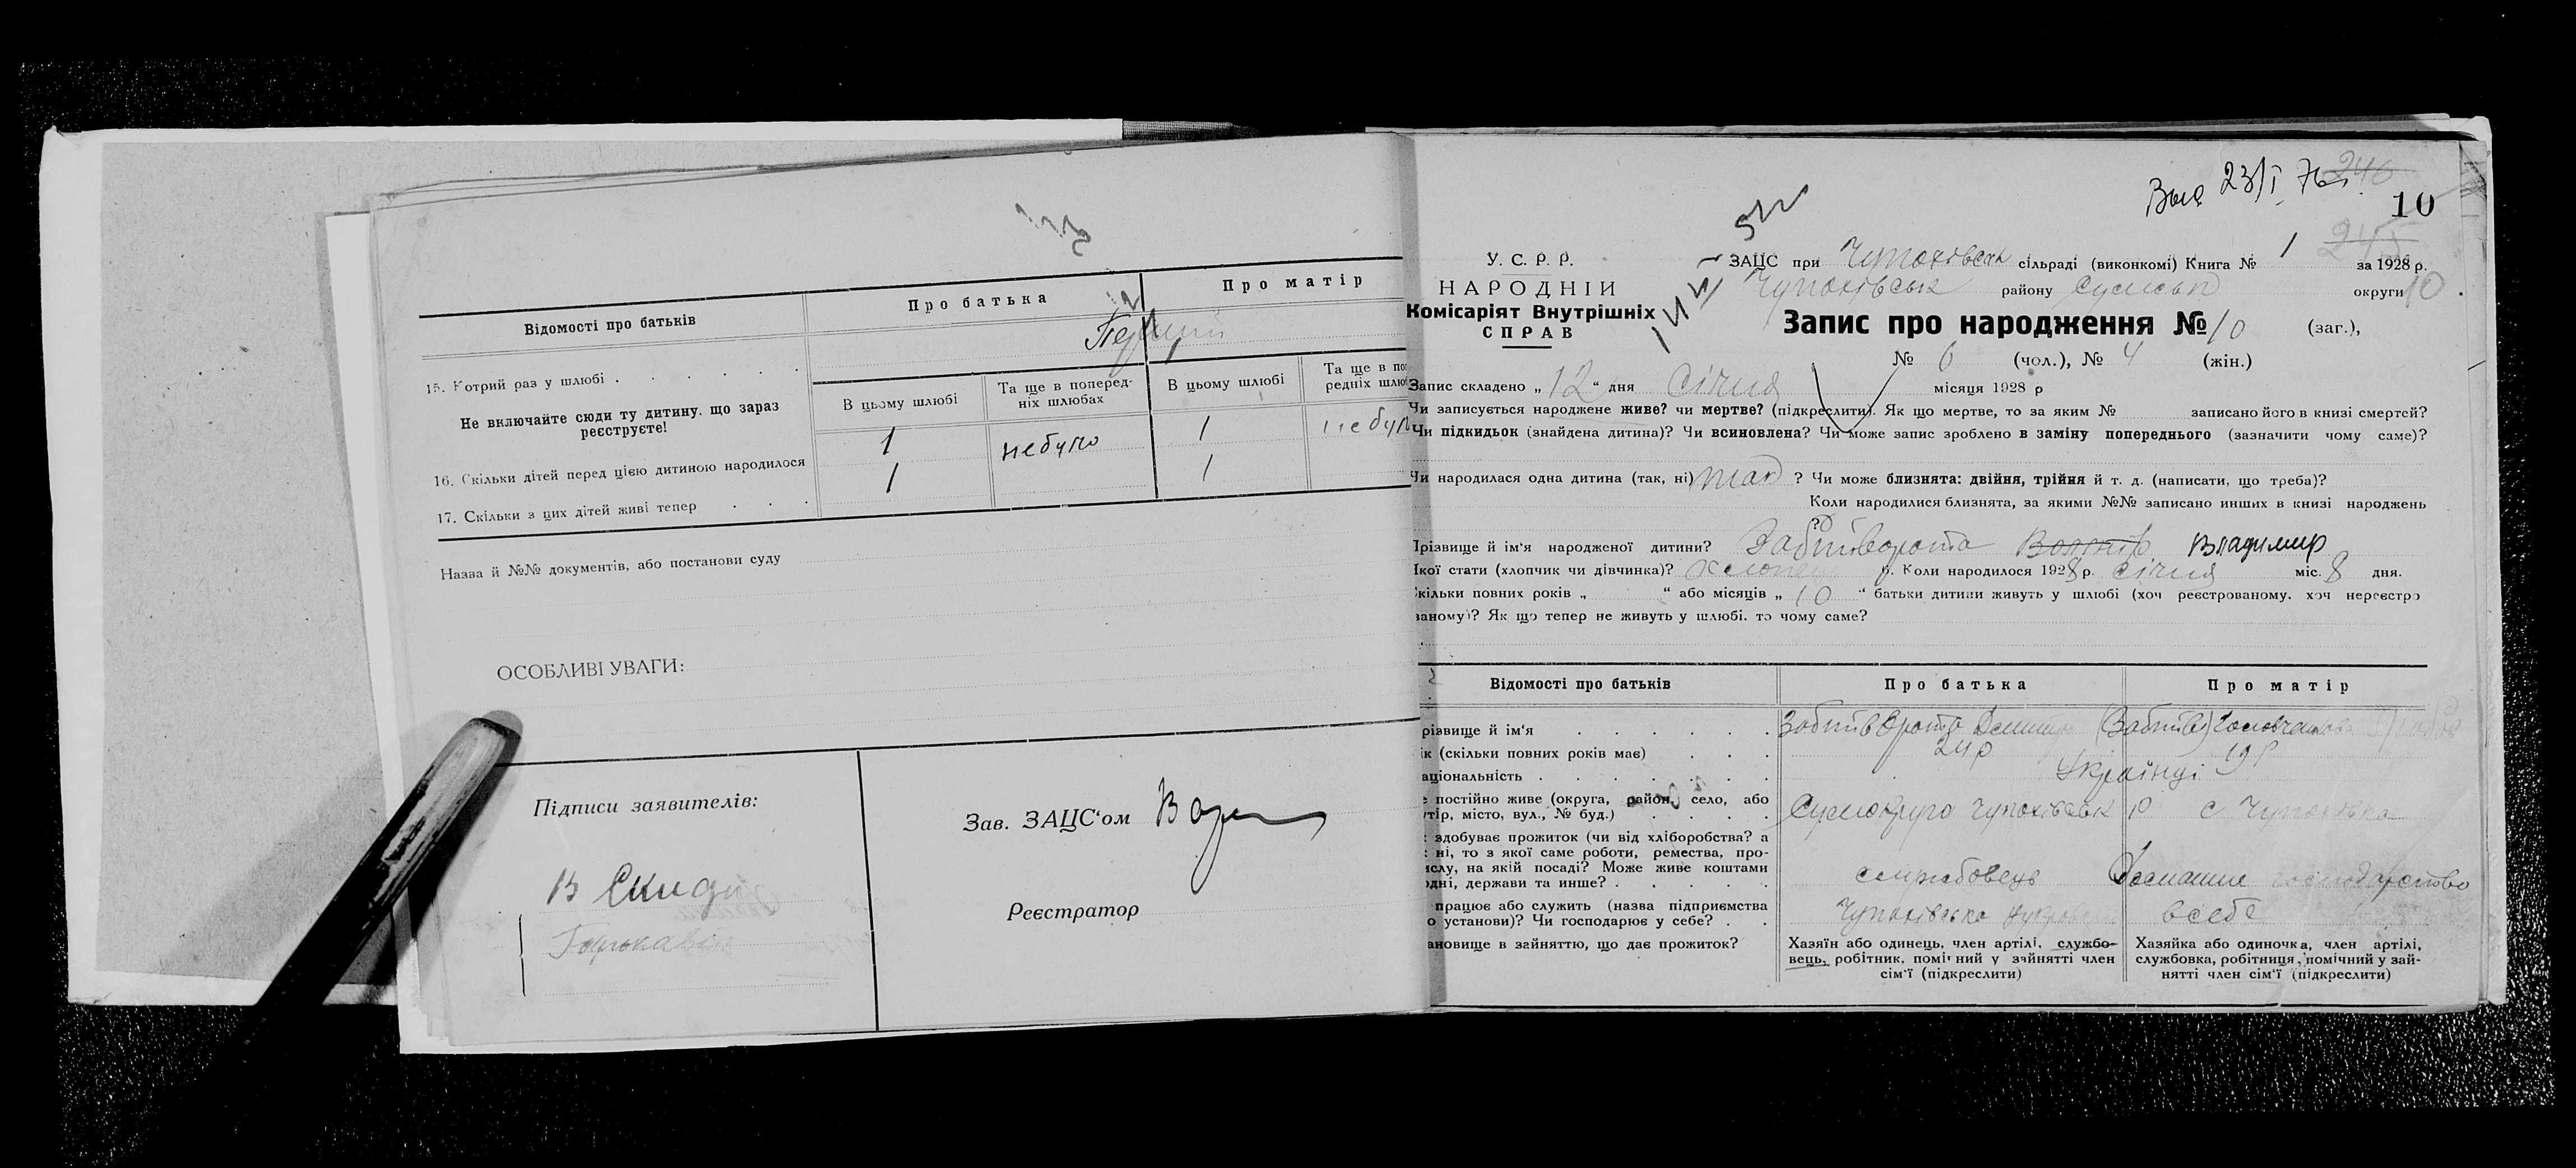 Відомості про батьків
Про батька
Про матір
15. Котрий раз у шлюбі
Перший
Не включайте сюди ту дитину, що зараз
реєструєте!
В цьому шлюбі
Та ще в поперед-
ніх шлюбах
В цьому шлюбі
Та ще в по
редніх шлю
16. Скільки дітей перед цією дитиною народилося
1
небуло
1
небул
17. Скільки з цих дітей живі тепер
1
1
Назва й №№ документів, або постанови суду
ОСОБЛИВІ УВАГИ:
Підписи заявителів:
Зав. ЗАЦС'ом
Реєстратор
23/I 76
246
10
245
У. С. Р. Р.
НАРОДНІЙ
Комісаріят Внутрішніх
СПРАВ
ЗАЦС при Чупахівськ сільраді (виконкомі) Книга № 1 за 1928 р.
Чупахівськ району Сумськ округи
10
Запис про народження № 10 (заг.),
№ 6 (чол.), № 4 (жін.)
Запис складено „ 12 “ дня Січня місяця 1928 р
Чи записується народжене живе? чи мертве? (підкреслити). Як що мертве, то за яким № записано його в книзі смертей?
Чи підкидьок (знайдена дитина)? Чи всиновлена? Чи може запис зроблено в заміну попереднього (зазначити чому саме)?
Чи народилася одна дитина (так, ні) так ? Чи може близнята: двійня, трійня й т. д. (написати, що треба)?
Коли народилися близнята, за якими №№ записано инших в книзі народжень
?
Прізвище й ім'я народженої дитини? Забійворота Владимир
Якої стати (хлопчик чи дівчинка)? хлопець Коли народилося 1928 р. Січня міс. 8 дня.
кільки повних років „ “ або місяців „ 10 “ батьки дитини живуть у шлюбі (хоч реєстрованому, хоч нереєстро
ваному)? Як що тепер не живуть у шлюбі, то чому саме?
Відомості про батьків
Про батька
Про матір
різвище й ім'я
Забійворота
ік (скільки повних років має)
24 р
19 р
аціональність
Українці
е постійно живе (округа, район, село, або
утір, місто, вул., № буд.)
Сумокруга Чупахівськ р с Чупахівка
здобуває прожиток (чи від хліборобства? а
ні, то з якої саме роботи, ремества, про-
ислу, на якій посаді? Може живе коштами
одні, держави та инше?
службовець
Домашнє господарство
працює або служить (назва підприємства
о установи)? Чи господарює у себе?
Чупахівська
всебе
ановище в зайняттю, що дає прожиток?
Хазяїн або одинець, член артілі, службо-
вець, робітник, помічний у зайнятті член
сім'ї (підкреслити)
Хазяйка або одиночка, член артілі,
службовка, робітниця, помічний у зай-
нятті член сім'ї (підкреслити)